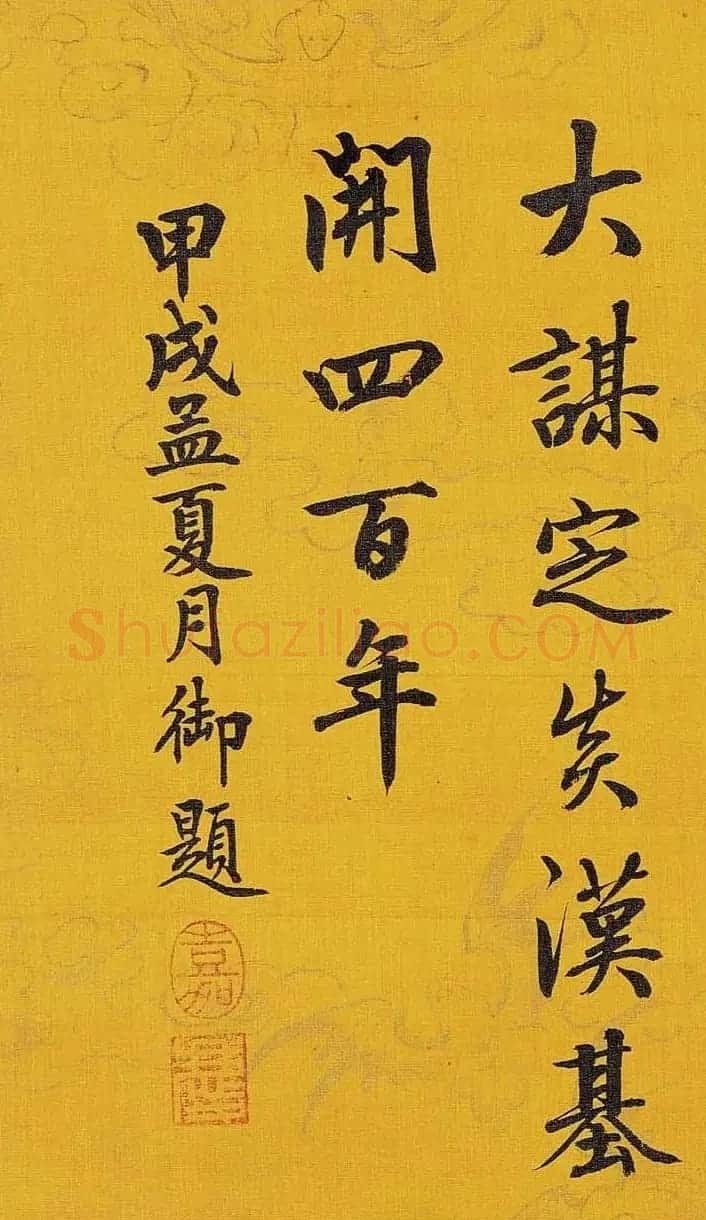 大謀定炎漢基
開四百年
甲戌孟夏月御題
嘉
Shufaziliao.COM